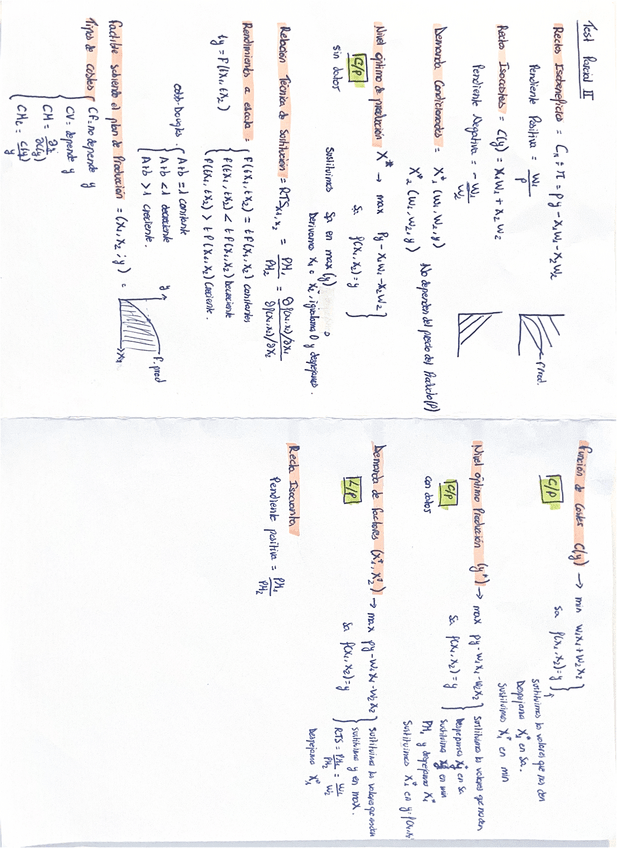 Test Parcial II
Recta Isobeneficios = Cπ : π = Py - x₁w₁ - x₂w₂
Pendiente Positiva = w₁/P
F. prod.
Recta Isocostes = C(y) = x₁w₁ + x₂w₂
Pendiente Negativa = - w₁/w₂
Demanda Condicionadas = X₁* (w₁, w₂, y) No dependen del precio del Producto (P)
X₂* (w₁, w₂, y)
Nivel óptimo de producción X* → max Py - x₁w₁ - x₂w₂ }
C/P
Sa f(x₁, x₂) = y
sin datos
Sustituimos Sa en max (y)
Derivamos x₁ o x₂, igualamos 0 y despejamos.
Relación Técnica de Sustitución = RTS x₁,x₂ = PM₁/PM₂ = ∂f(x₁,x₂)/∂x₁ / ∂f(x₁,x₂)/∂x₂
Rendimientos a escala = { F(tx₁, tx₂) = t F(x₁, x₂) constantes
ty = F(tx₁, tx₂) { F(tx₁, tx₂) < t F(x₁, x₂) Decreciente
{ F(tx₁, tx₂) > t F(x₁, x₂) Creciente.
Cobb-Douglas. { A+b = 1 constante
{ A+b < 1 decreciente
{ A+b > 1 creciente.
Factible sabiendo el plan de Producción = (x₁, x₂ ; y) =
y
F. prod
x₁
Tipos de costes { CF: no depende y
{ CV: depende y
{ CM =
{ CMe = C(y)/y
Función de Costes C(y) → min w₁x₁ + w₂x₂ }
C/P
Sa f(x₁, x₂) = y
Sustituimos los valores que nos dan
Despejamos X₂* en Sa.
Sustituimos X₂* en min
Nivel óptimo Producción (y*) → max Py - w₁x₁ - w₂x₂ } Sustituimos los valores que nos dan
C/P
Sa f(x₁, x₂) = y
Despejamos X₂* en Sa
con datos
Sustituimos X₂* en min
PM₁ y despejamos X₁*
Sustituimos X₁* en y =
Demanda de factores (X₁*, X₂*) → max Py - w₁x₁ - w₂x₂ } Sustituimos los valores que nos dan
L/P
Sa f(x₁, x₂) = y
Sustituimos y en max.
RTS = PM₁/PM₂ = w₁/w₂
Despejamos X₁*
Recta Isocuanta
Pendiente positiva = PM₁/PM₂